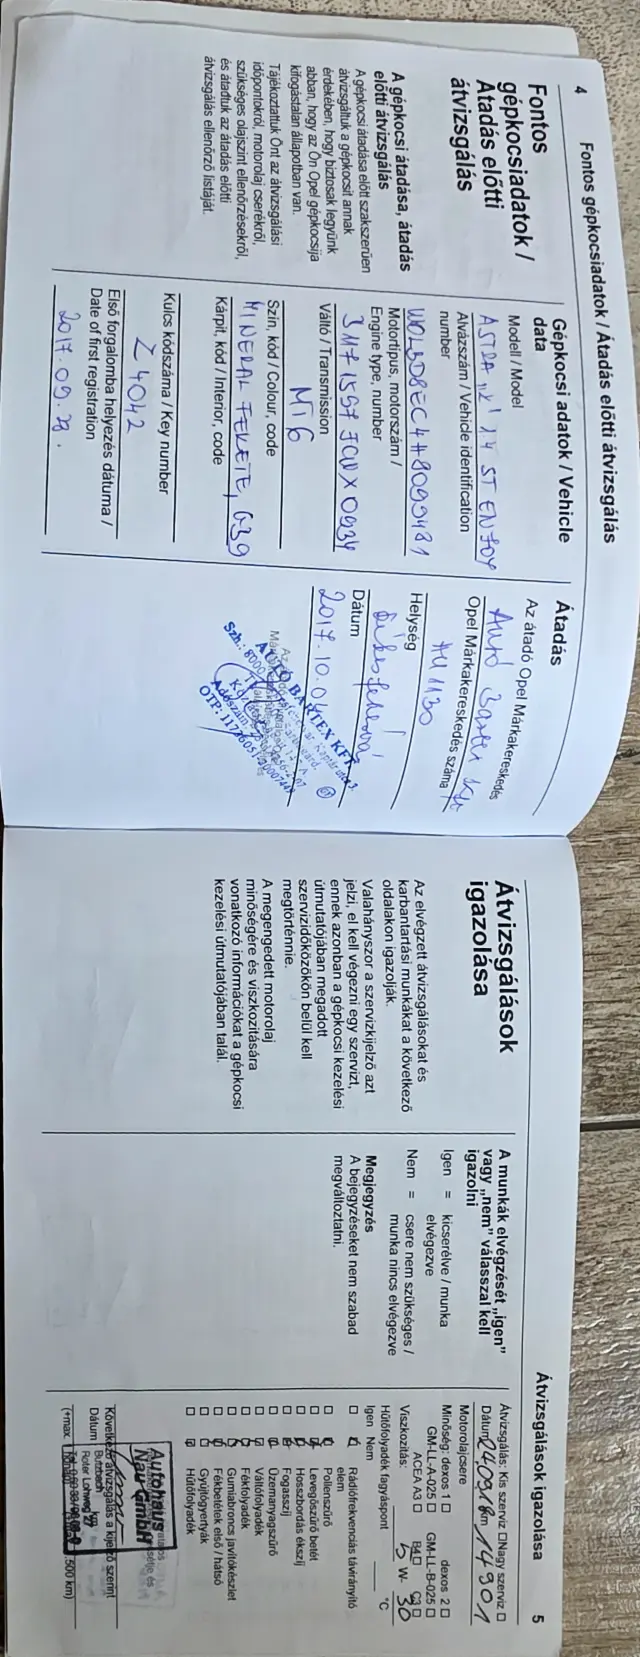 4
Fontos gépkocsiadatok / Átadás előtti átvizsgálás
Fontos
gépkocsiadatok /
Átadás előtti
átvizsgálás
A gépkocsi átadása, átadás
előtti átvizsgálás
A gépkocsi átadása előtt szakszerűen
átvizsgáltuk a gépkocsit annak
érdekében, hogy biztosak legyünk
abban, hogy az Ön Opel gépkocsija
kifogástalan állapotban van.
Tájékoztattuk Önt az átvizsgálási
időpontokról, motorolaj cserékről,
szükséges olajszint ellenőrzésekről,
és átadtuk az átadás előtti
átvizsgálás ellenőrző listáját.
Gépkocsi adatok / Vehicle
data
Modell / Model
ASTRA "K" 1.4 ST ENJOY
Alvázszám / Vehicle identification
number
Motortípus, motorszám /
Engine type, number
Váltó / Transmission
MT6
Szín, kód / Colour, code
MINERAL FEKETE, G39
Kárpit, kód / Interior, code
Kulcs kódszáma / Key number
Z4042
Első forgalomba helyezés dátuma /
Date of first registration
2017.09.28.
Átadás
Az átadó Opel Márkakereskedés
Autó Bartex Kft
Opel Márkakereskedés száma
HU1130
Helység
Dátum
2017.10.04
AUTÓ BARTEX KFT.
Átvizsgálások igazolása
5
Átvizsgálások
igazolása
Az elvégzett átvizsgálásokat és
karbantartási munkákat a következő
oldalakon igazolják.
Valahányszor a szervizkijelző azt
jelzi, el kell végezni egy szervizt,
ennek azonban a gépkocsi kezelési
útmutatójában megadott
szervizidőközökön belül kell
megtörténnie.
A megengedett motorolaj
minőségére és viszkozitására
vonatkozó információkat a gépkocsi
kezelési útmutatójában talál.
A munkák elvégzését „igen”
vagy „nem” válasszal kell
igazolni
Igen = kicserélve / munka
elvégezve
Nem = csere nem szükséges /
munka nincs elvégezve
Megjegyzés
A bejegyzéseket nem szabad
megváltoztatni.
Átvizsgálás: Kis szerviz ☐ Nagy szerviz ☐
Dátum 24.09.18 km 14901
Motorolajcsere
Minőség: dexos 1 ☐ dexos 2 ☐
GM-LL-A-025 ☐ GM-LL-B-025 ☐
ACEA A3 ☐ B4 ☐ C3 ☐
Viszkozitás: 5 W- 30
Hűtőfolyadék fagyáspont °C
Igen Nem
Rádiófrekvenciás távirányító
elem
Pollenszűrő
Levegőszűrő betét
Hosszbordás ékszíj
Fogasszíj
Üzemanyagszűrő
Váltófolyadék
Fékfolyadék
Gumiabroncs javítókészlet
Fékbetétek első / hátsó
Gyújtógyertyák
Hűtőfolyadék
Autohaus
Nau GmbH
Következő átvizsgálás a kijelző szerint
Dátum
Butzbach
Roter Lohweg 27